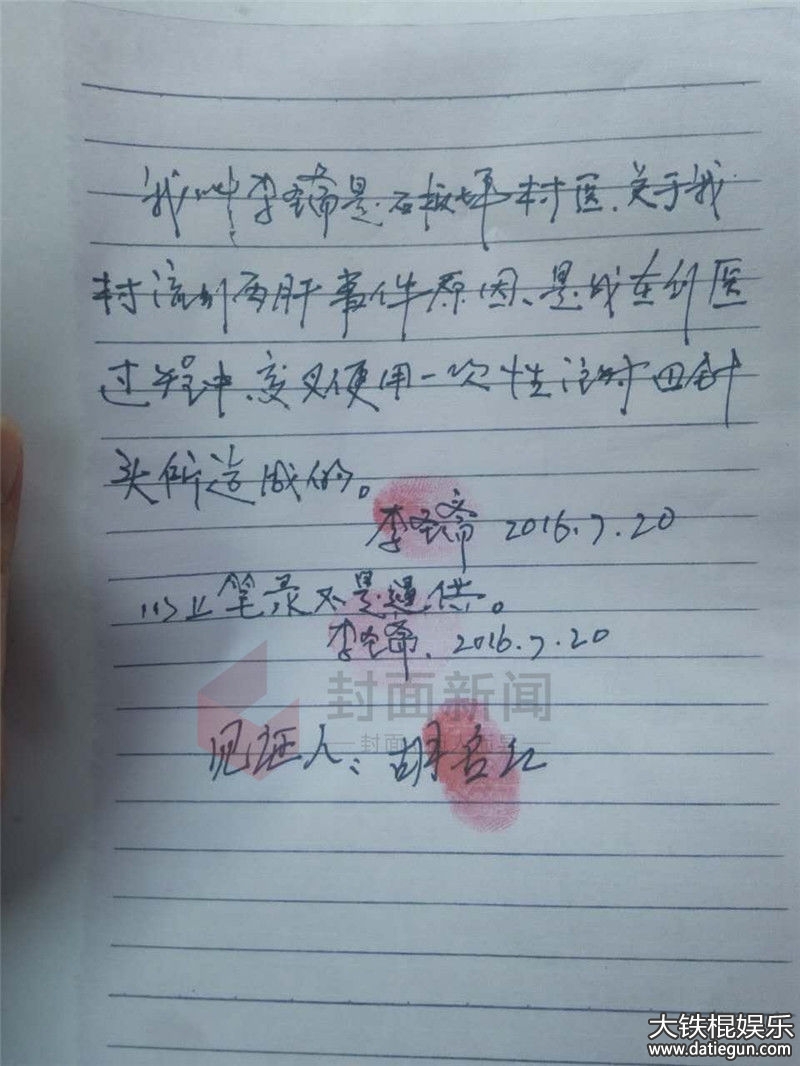 我叫李圣斋是石板坪村医.关于我
村流行丙肝事件原因、是我在行医
过程中、交叉使用一次性注射器针
头所造成的。
李圣斋 2016.7.20
以上笔录不是逼供。
李圣斋. 2016.7.20
封面新闻
封面
见证人：胡名红
大铁棍娱乐
www.datiegun.com